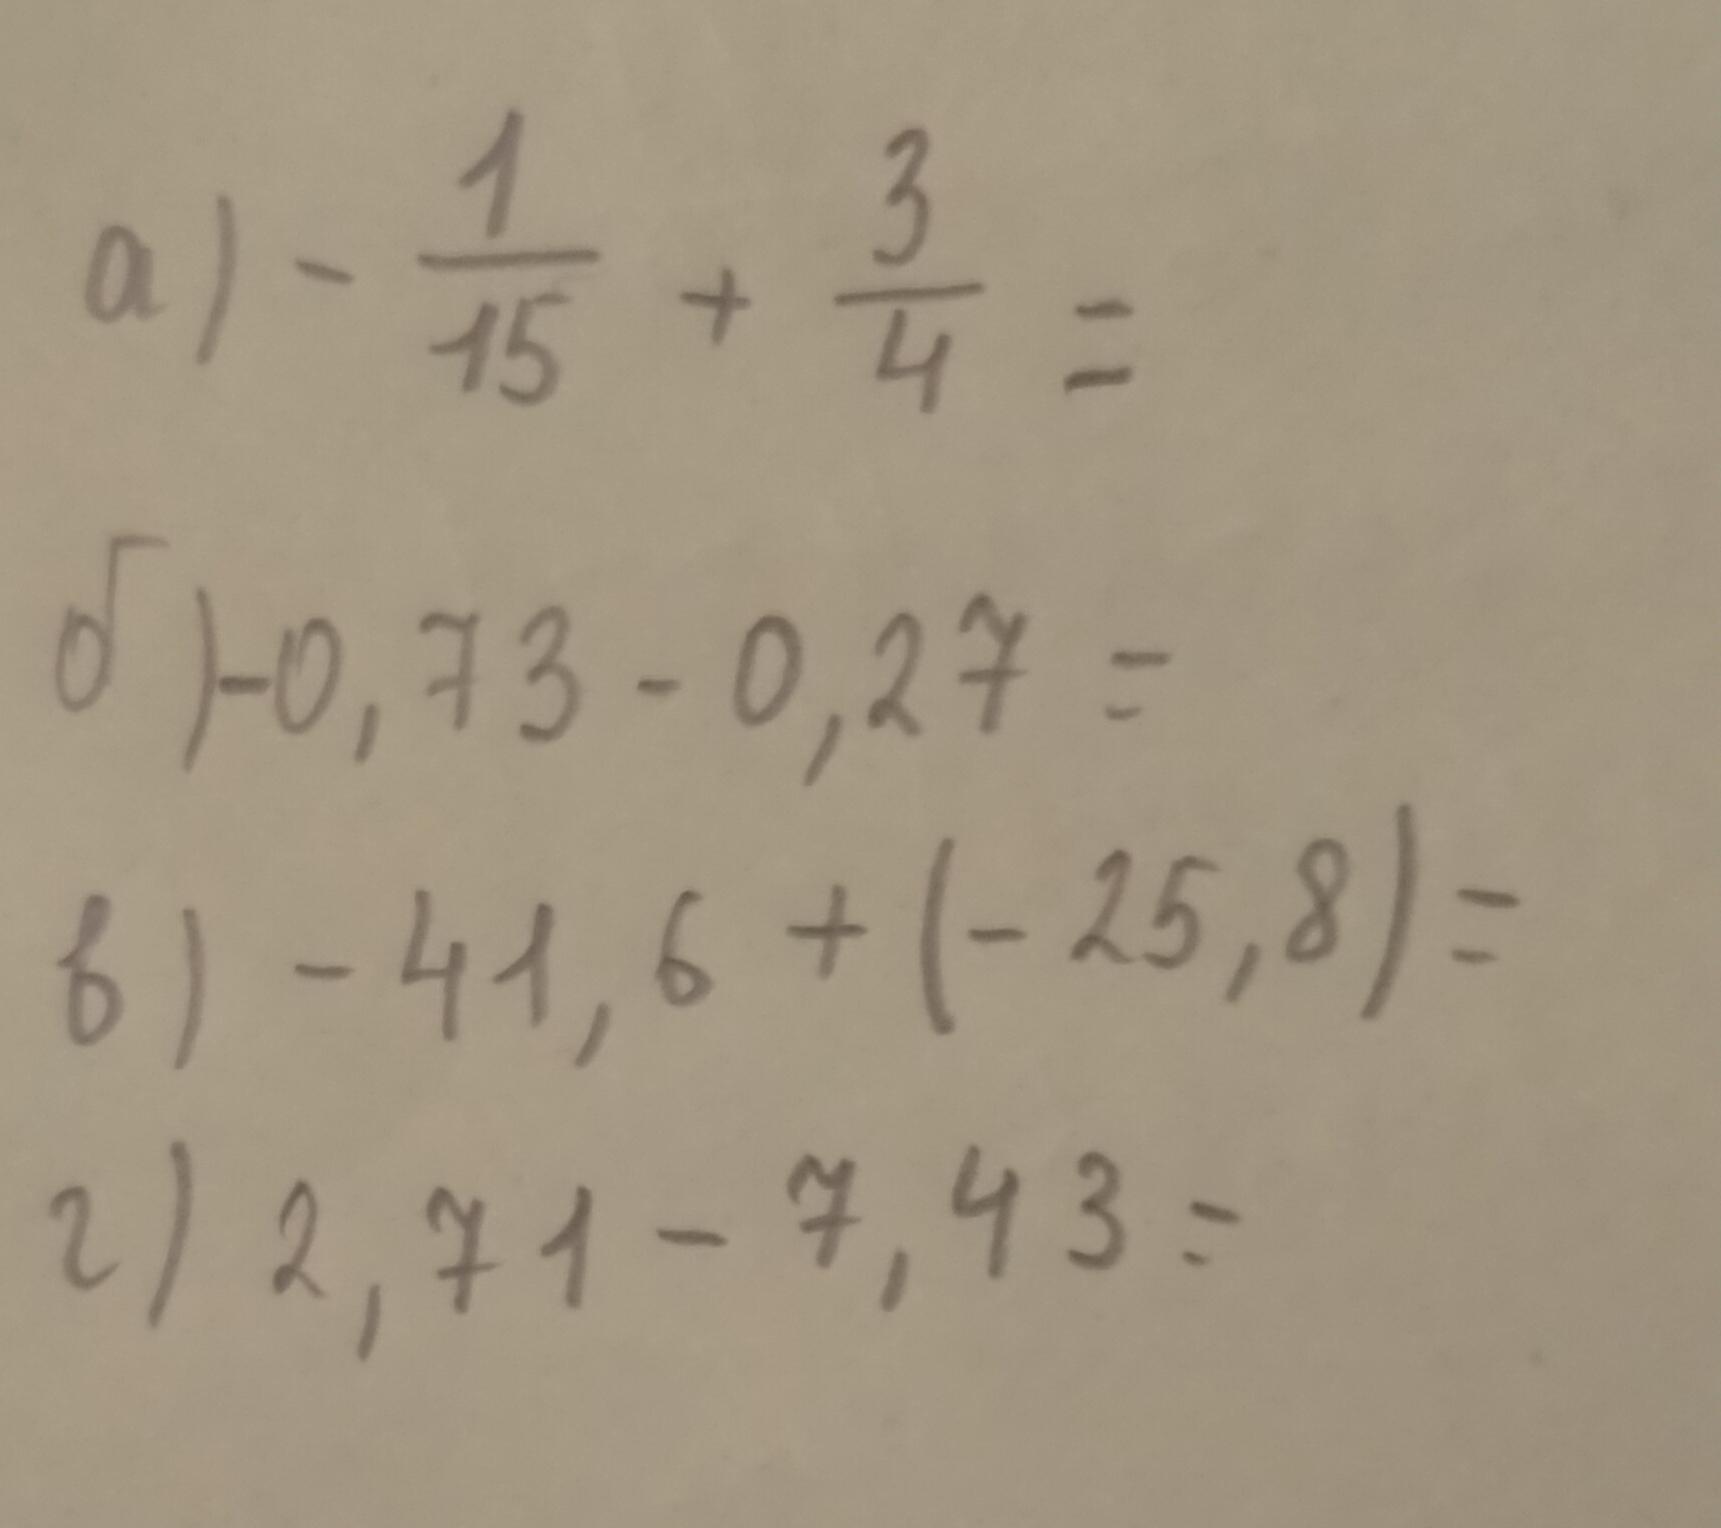 а) - 1/15 + 3/4 =
б) -0,73 - 0,27 =
в) - 41,6 + (- 25,8) =
г) 2,71 - 7,43 =